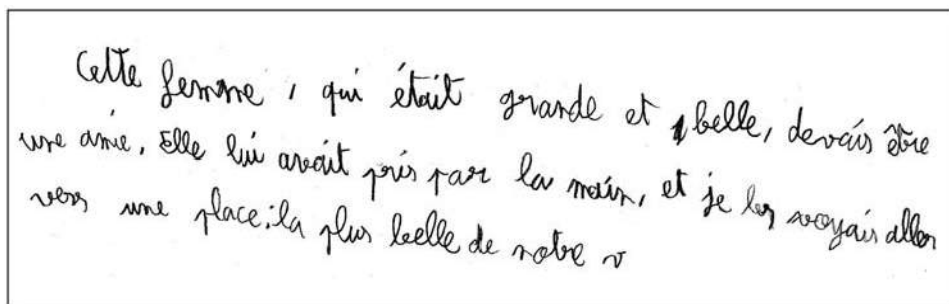 Cette femme, qui était grande et belle, devais être
une amie. Elle lui avait pris par la main, et je les voyais aller
vers une place : la plus belle de notre v